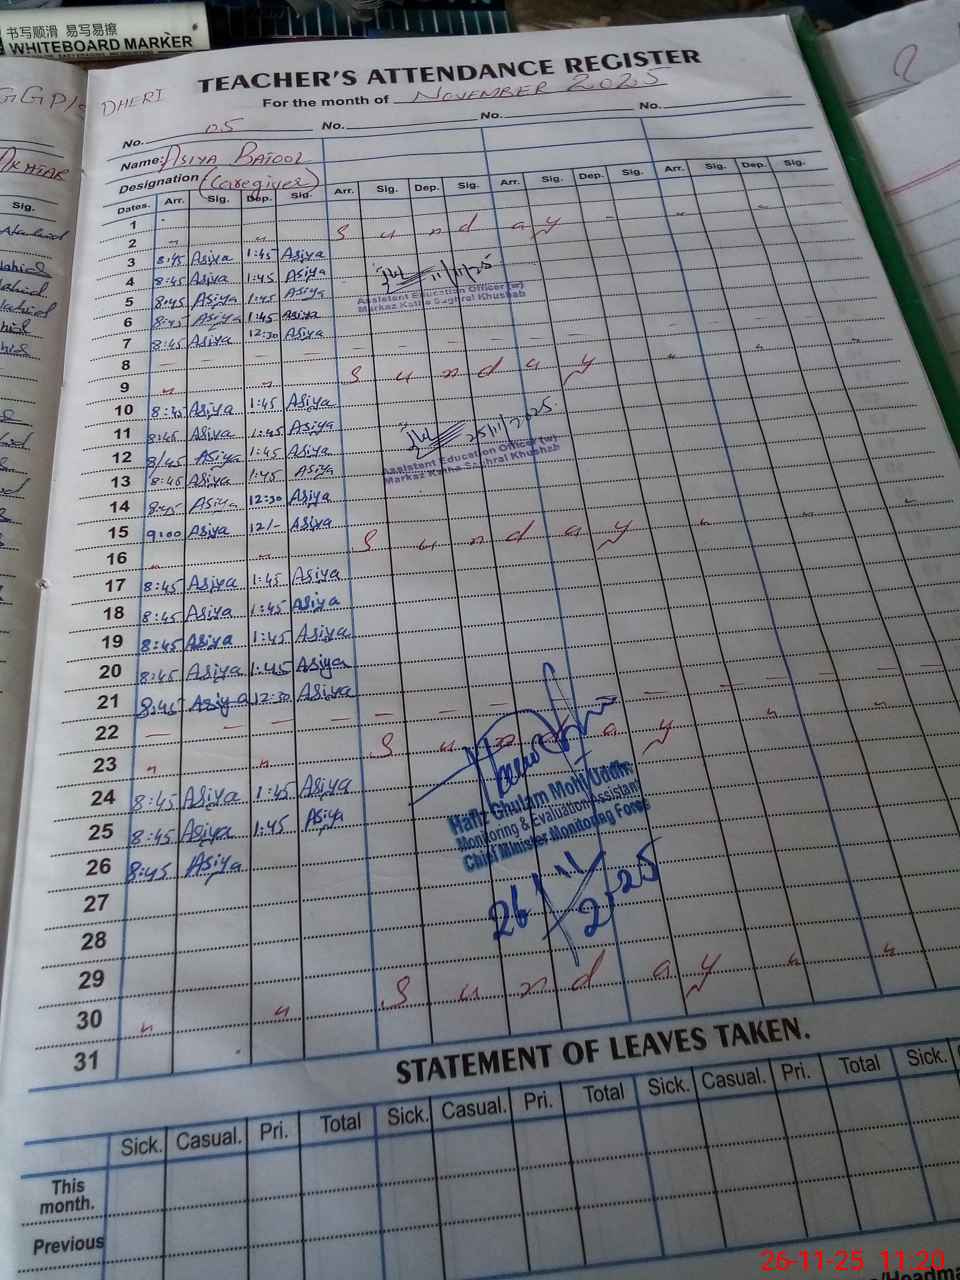 书写顺滑 易写易擦
WHITEBOARD MARKER
TEACHER'S ATTENDANCE REGISTER
DHERI
For the month of NOVEMBER 2025
No. 05 No. No. No.
Name: ASIYA BATOOL
Designation (Caregiver)
Dates. Arr. Sig. Dep. Sig. Arr. Sig. Dep. Sig. Arr. Sig. Dep. Sig. Arr. Sig. Dep. Sig.
1
2 " " Sunday " " "
3 8:45 Asiya 1:45 Asiya
4 8:45 Asiya 1:45 Asiya 11/11/25
5 8:45 Asiya 1:45 Asiya Assistent Education Officer (w)
Markaz Katha Saghral Khushab
6 8:45 Asiya 1:45 Asiya
7 8:45 Asiya 12:30 Asiya
8 — — — —
9 " " Sunday " " "
10 8:45 Asiya 1:45 Asiya
11 8:45 Asiya 1:45 Asiya 25/11/2025
12 8/45 Asiya 1:45 Asiya Assistent Education Officer (w)
Markaz Katha Saghral Khushab
13 8:45 Asiya 1:45 Asiya
14 8:45 Asiya 12:30 Asiya
15 9:00 Asiya 12/- Asiya
16 " " Sunday " " "
17 8:45 Asiya 1:45 Asiya
18 8:45 Asiya 1:45 Asiya
19 8:45 Asiya 1:45 Asiya
20 8:45 Asiya 1:45 Asiya
21 8:45 Asiya 12:30 Asiya
22 — — — —
23 " " Sunday " "
24 8:45 Asiya 1:45 Asiya
Hafiz Ghulam Mohi Uddin
25 8:45 Asiya 1:45 Asiya Monitoring & Evaluation Assistant
Chief Minister Monitoring Force
26 8:45 Asiya
27 26/11/2025
28
29
30 " " Sunday " "
31
STATEMENT OF LEAVES TAKEN.
Sick. Casual. Pri. Total Sick. Casual. Pri. Total Sick. Casual. Pri. Total Sick.
This
month.
Previous
26-11-25 11:20